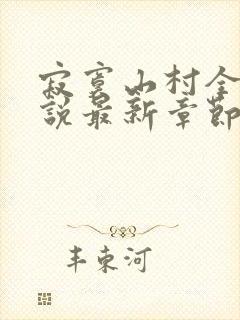 寂寞山村全
說最新章節
丰東河